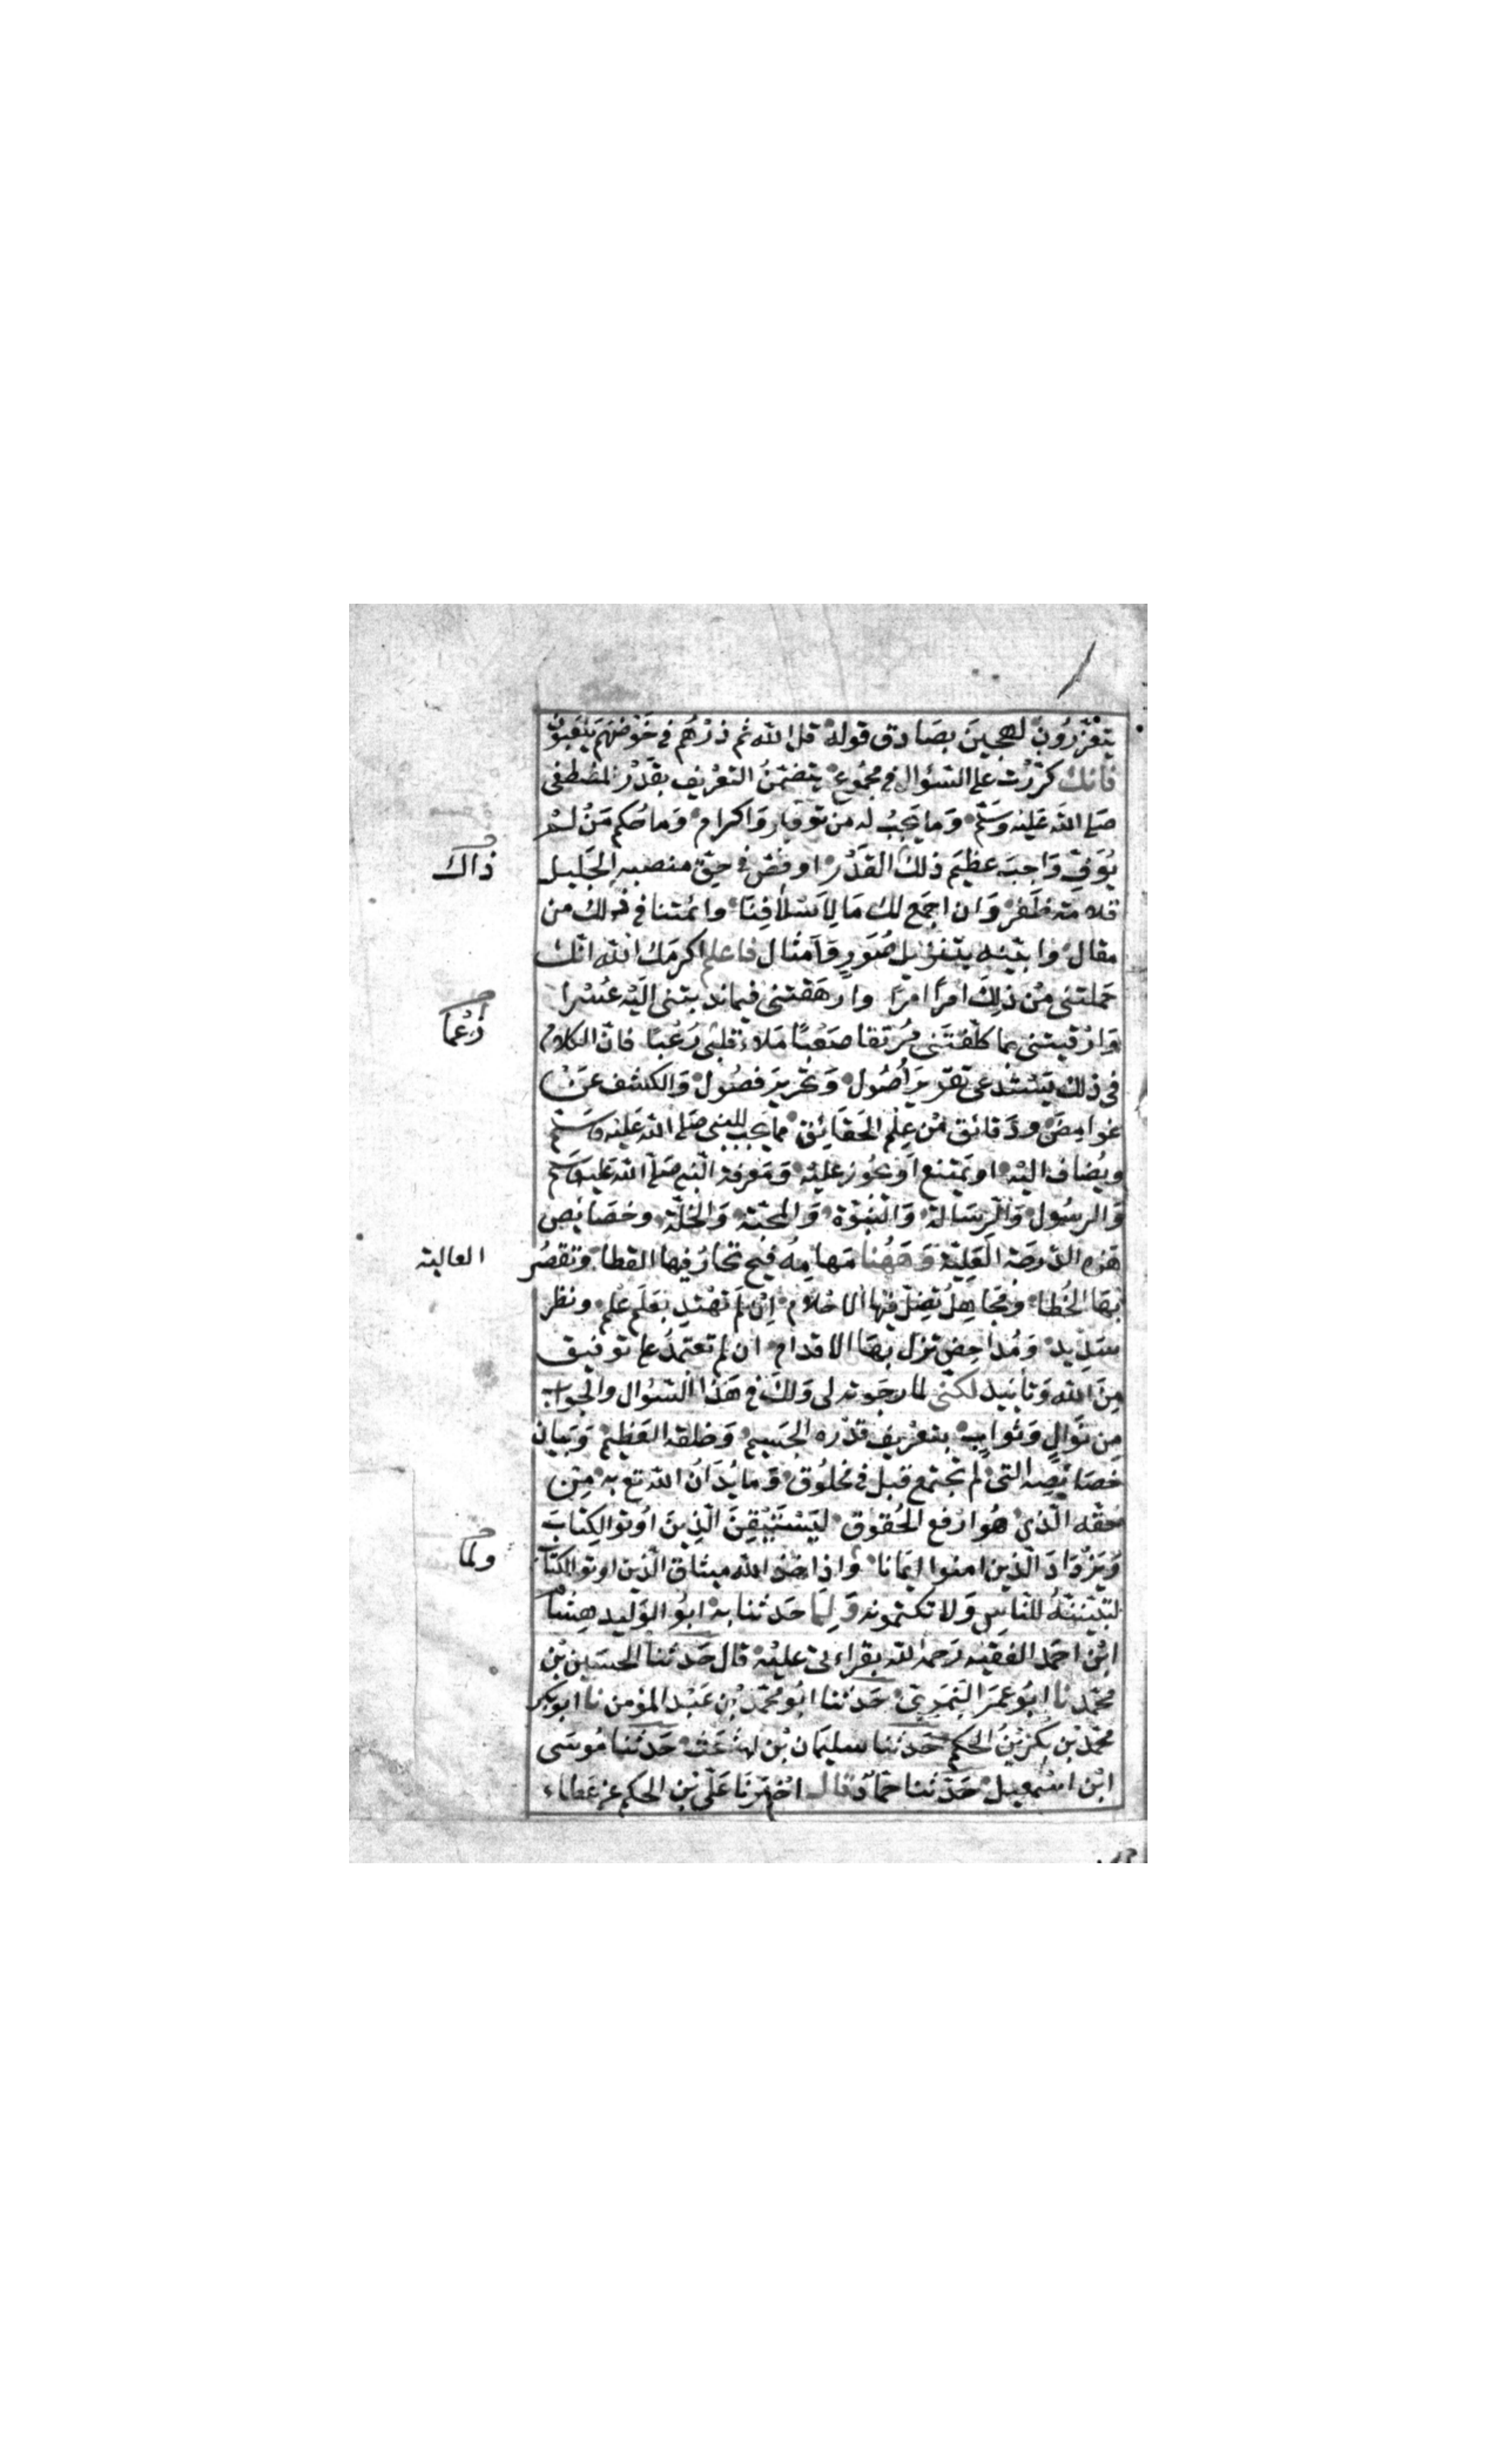 يتعززون لهجين بصادق قوله قل الله ثم ذرهم في خوضهم يلعبون
فانك كررت على السؤال في مجموع يتضمن التعريف بقدر المصطفى
صلى الله عليه وسلم وما يجب له من توقير واكرام وما حكم من لم
يوف واجب عظيم ذلك القدر او قصر في حق منصبه الجليل
ذاك
قلامة ظفر وان اجمع لك ما لاسلافنا وائمتنا في ذلك من
مقال وابينه بتنزيل صور وامثال فاعلم اكرمك الله انك
حملتني من ذلك امرا امرا وارهقتني فيما ندبتني اليه عسرا
وارقيتني بما كلفتني مرتقا صعبا ملاء قلبي رعبا فان الكلام
ذعما
في ذلك يستدعى تقرير اصول وتحرير فصول والكشف عن
غوامض ودقائق من علم الحقائق مما يجب للنبي صلى الله عليه وسلم
ويضاف اليه او يمتنع او يجوز عليه ومعرفة النبي صلى الله عليه وسلم
والرسول والرسالة والنبوة والمحبة والخلة وخصايص
هذه الدرجة العلية وههنا مهامه فيح تحار فيها القطا وتقصر
العالية
بها الخطا ومجاهل تضل فيها الاحلام ان لم تهتد بعلم علم ونظر
سديد ومداحض تزل بها الاقدام ان لم تعتمد على توفيق
من الله وتاييد لكني لما رجوته لى ولك في هذا السؤال والجواب
من نوال وثواب بتعريف قدره الجسيم وخلقه العظيم وبيان
خصايصه التي لم تجتمع قبل في مخلوق وما يدان الله تع به من
حقه الذي هو ارفع الحقوق ليستيقن الذين اوتوا الكتاب
ويزداد الذين امنوا ايمانا واذ اخذ الله ميثاق الذين اوتوا الكتاب
ولما
لتبيننه للناس ولا تكتمونه ولما حدثنا به ابو الوليد هشام
ابن احمد الفقيه رحمه الله بقراءتى عليه قال حدثنا الحسين بن
محمد نا ابو عمر النمري حدثنا ابو محمد بن عبد المؤمن نا ابو بكر
محمد بن بكر بن الحكم حدثنا سليمان بن اشعث حدثنا موسى
ابن اسمعيل حدثنا حماد قال اخبرنا على بن الحكم عن عطاء